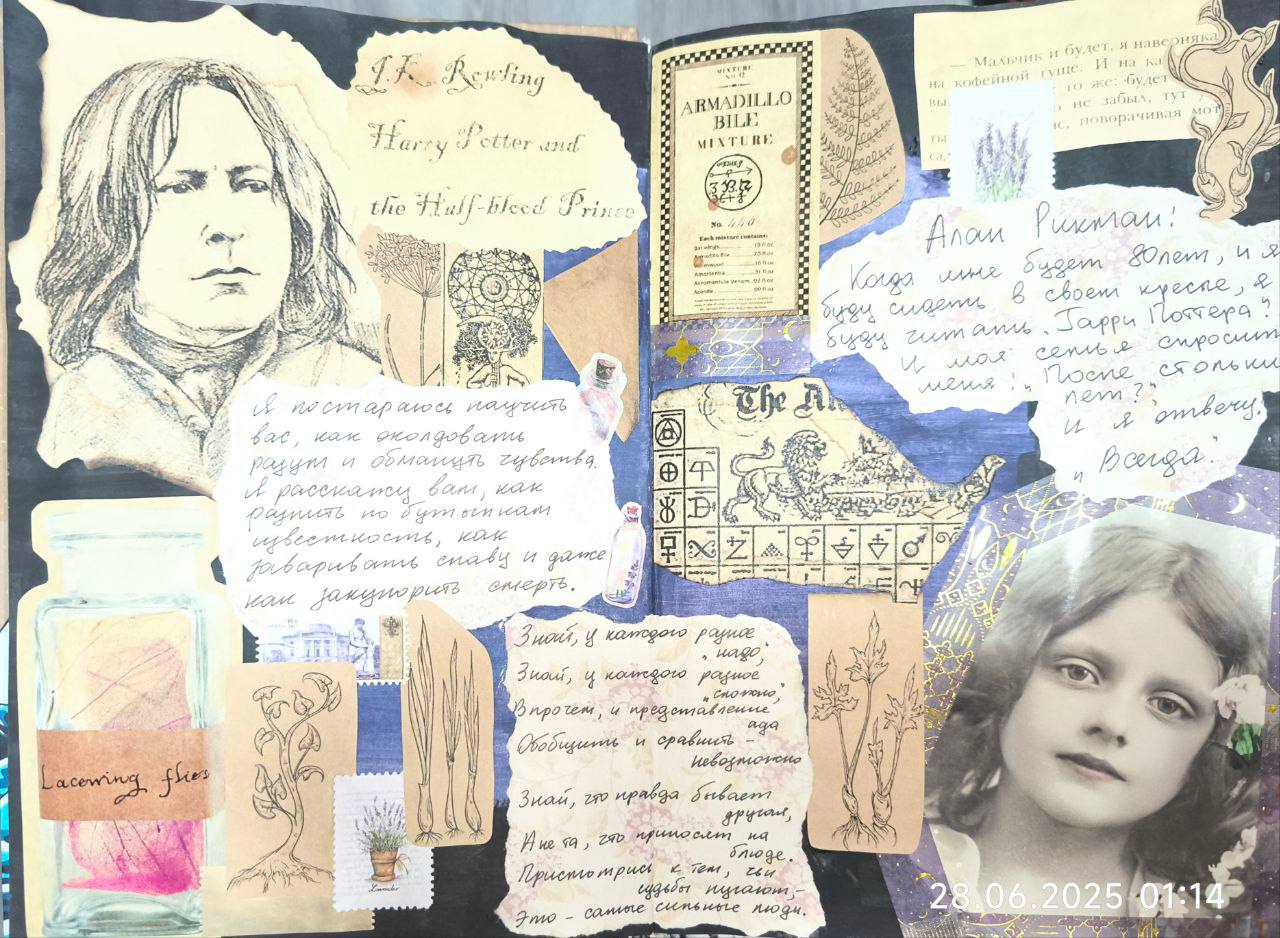 J.K. Rowling
Harry Potter and
the Half-blood Prince
Я постараюсь научить
вас, как околдовать
разум и обмануть чувства.
Я расскажу вам, как
разлить по бутылкам
известность, как
заваривать славу и даже
как закупорить смерть.
Lacewing flies
Lavender
MIXTURE
NO 12
ARMADILLO
BILE
MIXTURE
No. 440
Each mixture contains:
Bat wings
Armadillo Bile
Wormwood
Amortentia
Acromantula Venom
Aconite
— Мальчик и будет, я наверняка
на кофейной гуще. И на ка
вы то же: будет
о не забыл, тут
ты ис, поворачивая мот
сад
Алан Рикман!
Когда мне будет 80лет, и я
буду сидеть в своем кресле, я
буду читать „Гарри Поттера".
И моя семья спросит
меня: „После стольки
лет?"
и я отвечу.
„Всегда".
The Al
Знай, у каждого разное
„надо",
Знай, у каждого разное
„спокойно",
Впрочем, и представление
ада
Обобщить и сравнить –
невозможно
Знай, что правда бывает
другая,
А не та, что приносят на
блюде.
Присмотрись к тем, чьи
судьбы пугают, –
Это – самые сильные люди.
28.06.2025 01:14